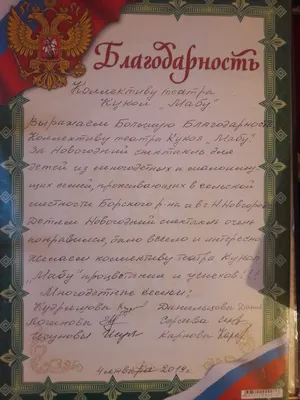 Благодарность
Коллективу театра
Кукол „Мабу"
Выражаем Большую Благодарность
Коллективу театра Кукол „Мабу"
за Новогодний спектакль для
детей из многодетных и малоиму-
щих семей, проживающих в сельской
местности Борского р-на и в г. Н.Новгороде
Детям Новогодний спектакль очень
понравился, было весело и интересно
Желаем коллективу театра Кукол
„Мабу" процветания и успехов!!!
Многодетные семьи:
Кудряшова Данильцова
Логинова Сергеева
Карпова
4 января 2014г.